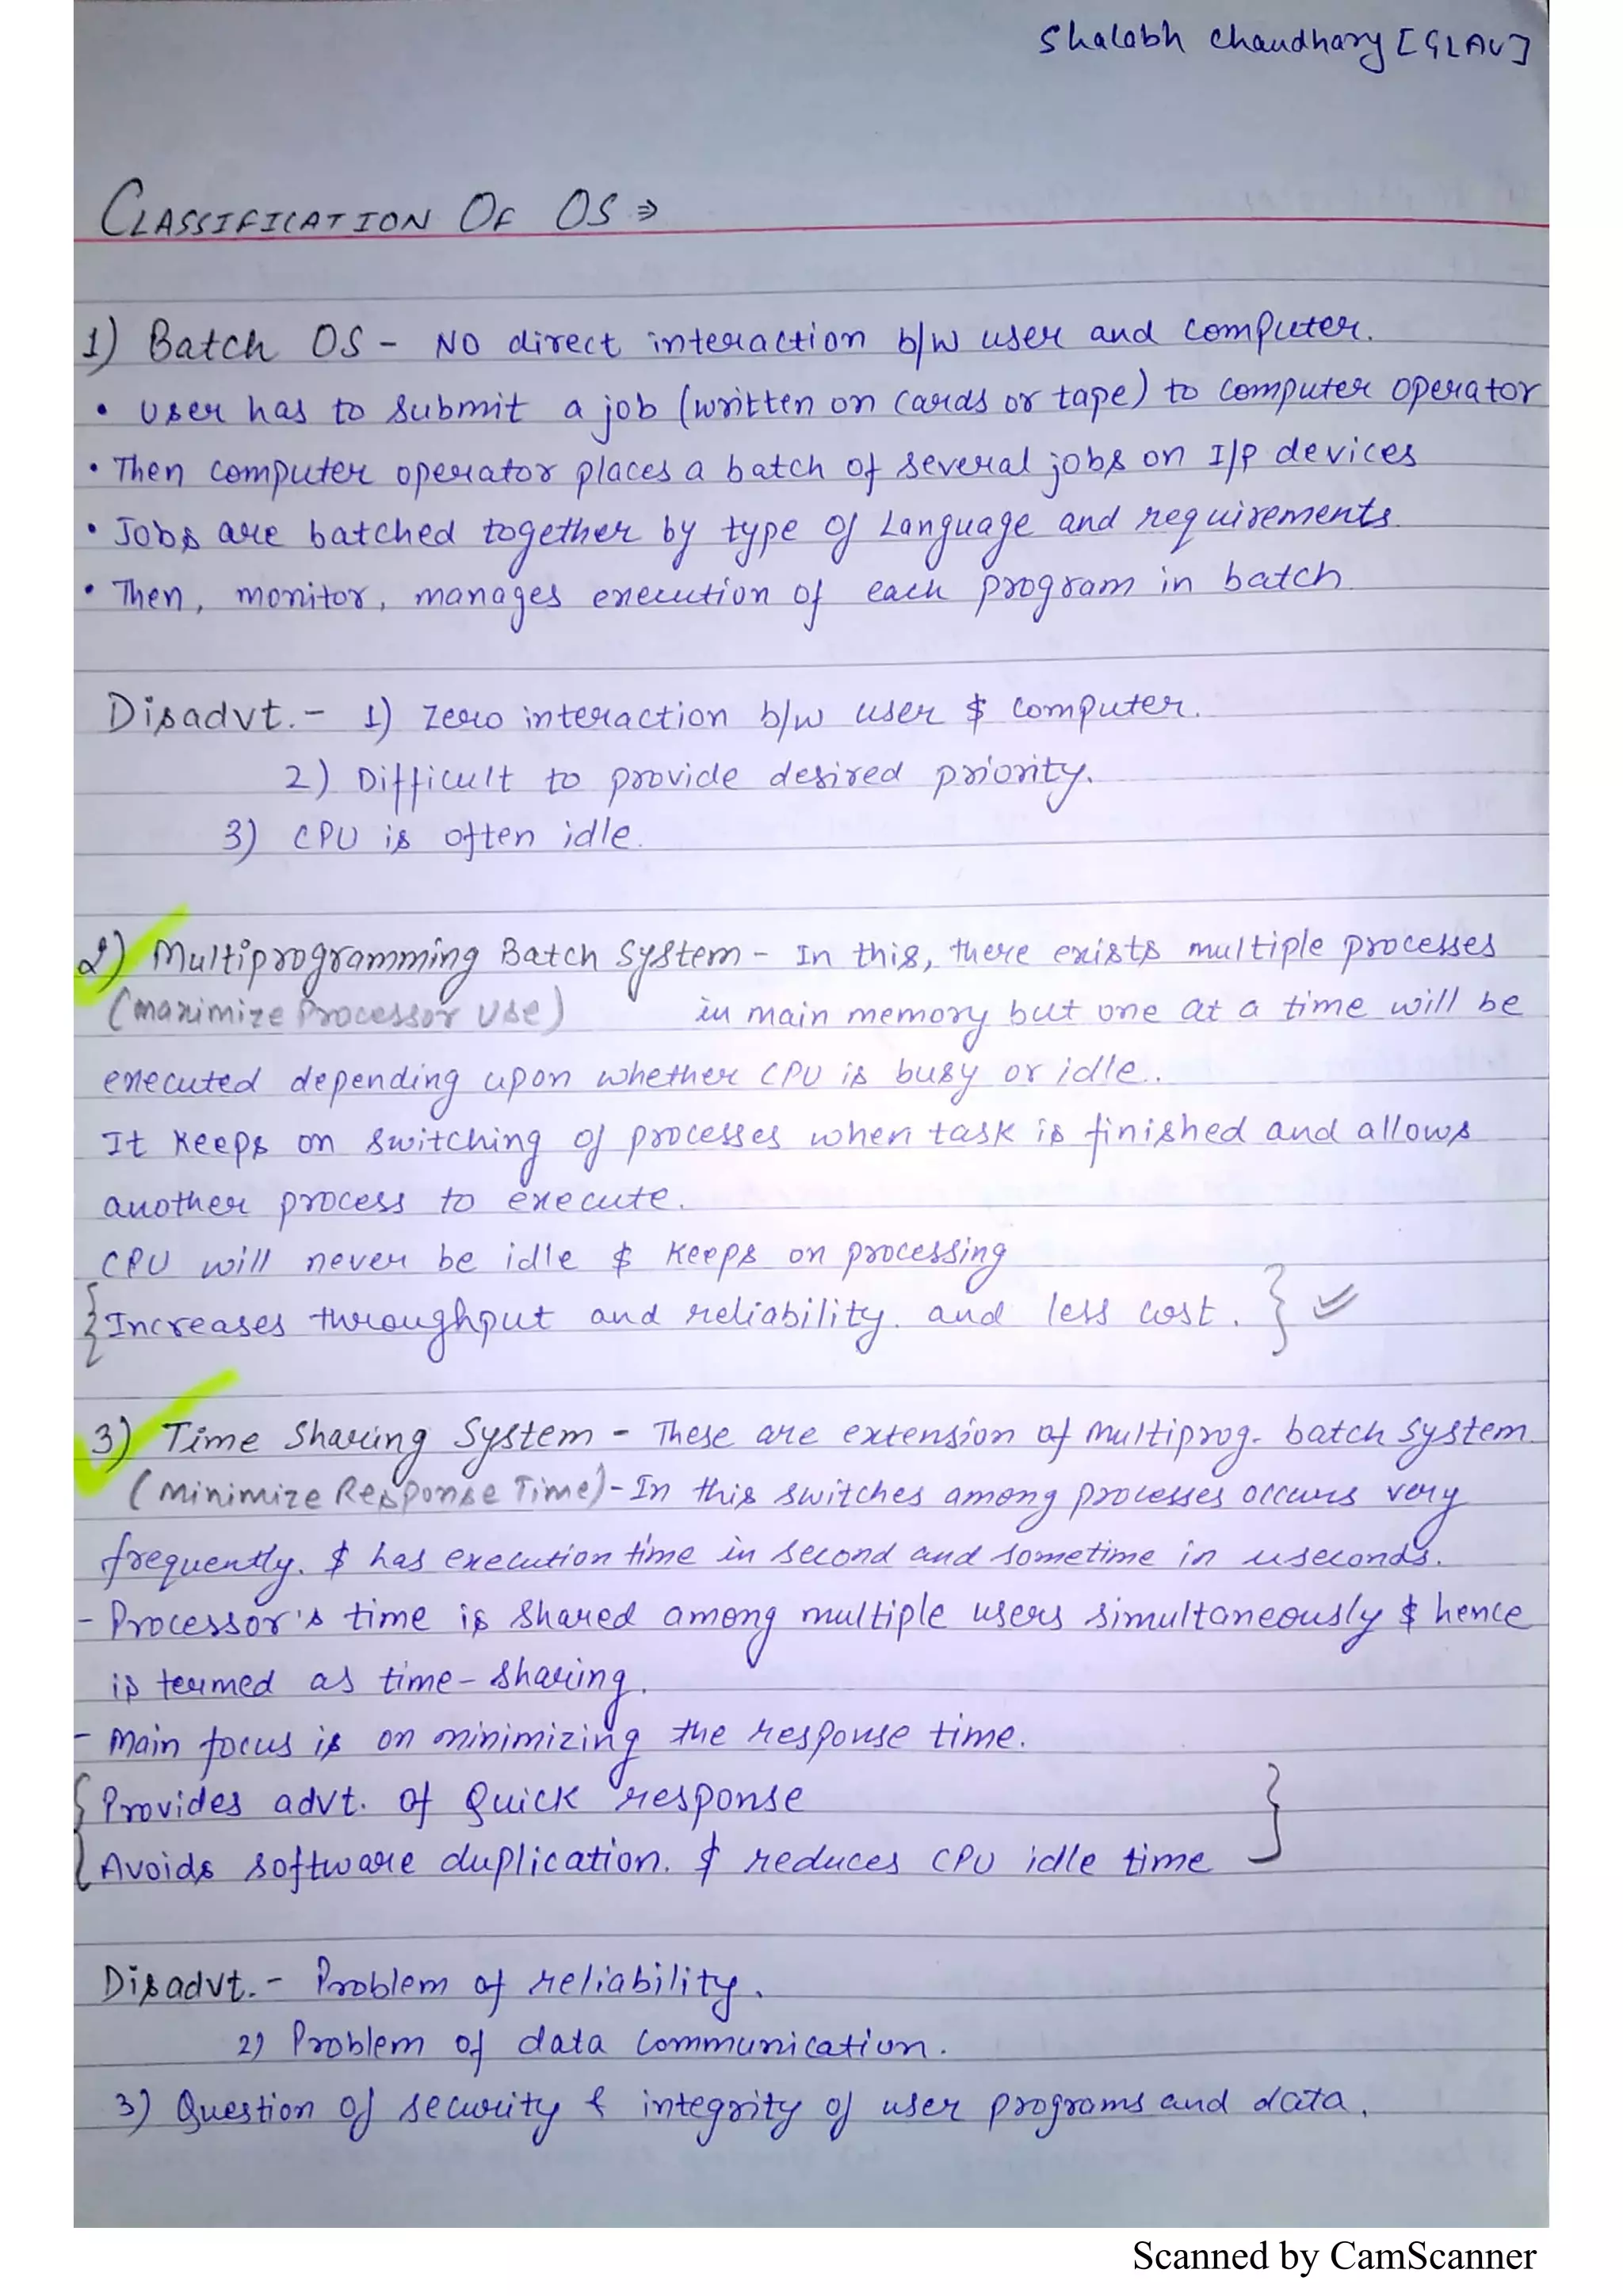 Shalabh Chaudhary [GLAU]
CLASSIFICATION OF OS ⇒
1) Batch OS - No direct interaction b/w user and computer.
• User has to submit a job (written on cards or tape) to computer operator
• Then computer operator places a batch of several jobs on I/P devices
• Jobs are batched together by type of Language and requirements.
• Then, monitor, manages execution of each program in batch
Disadvt. - 1) Zero interaction b/w user & computer.
2) Difficult to provide desired priority.
3) CPU is often idle.
2) Multiprogramming Batch System - In this, there exists multiple processes
(Maximize Processor Use) in main memory but one at a time will be
executed depending upon whether CPU is busy or idle..
It keeps on switching of processes when task is finished and allows
another process to execute.
CPU will never be idle & keeps on processing
{Increases throughput and reliability. and less cost. } ✓
3) Time Sharing System - These are extension of multiprog. batch system
(Minimize Response Time) - In this switches among processes occurs very
frequently. & has execution time in second and sometime in useconds.
- Processor's time is shared among multiple users simultaneously & hence
is termed as time-sharing.
- Main focus is on minimizing the response time.
{ Provides advt. of Quick response }
Avoids software duplication. & reduces CPU idle time
Disadvt. - Problem of reliability.
2) Problem of data communication.
3) Question of security & integrity of user programs and data.
Scanned by CamScanner